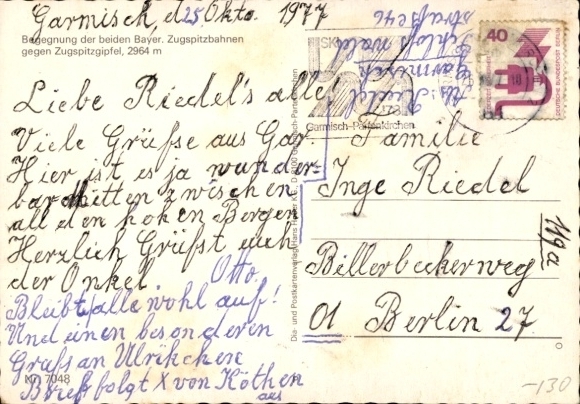 Garmisch, d. 25 Okto. 1977
Begegnung der beiden Bayer. Zugspitzbahnen
gegen Zugspitzgipfel, 2964 m
Liebe Riedel's alle
Viele Grüße aus Gar.
Hier ist es ja wunder=
bar mitten zwischen
all den hohen Bergen
Herzlich Grüßt euch
der Onkel. Otto.
Bleibt alle wohl auf!
Und einen besonderen
Gruß an Ulrikchen.
Brief folgt X von Köthen
aus
Nr. 7048
Garmisch-Partenkirchen
40
DEUTSCHE BUNDESPOST BERLIN
Familie
Inge Riedel
Billerbeckerweg
119a
01 Berlin 27
-130